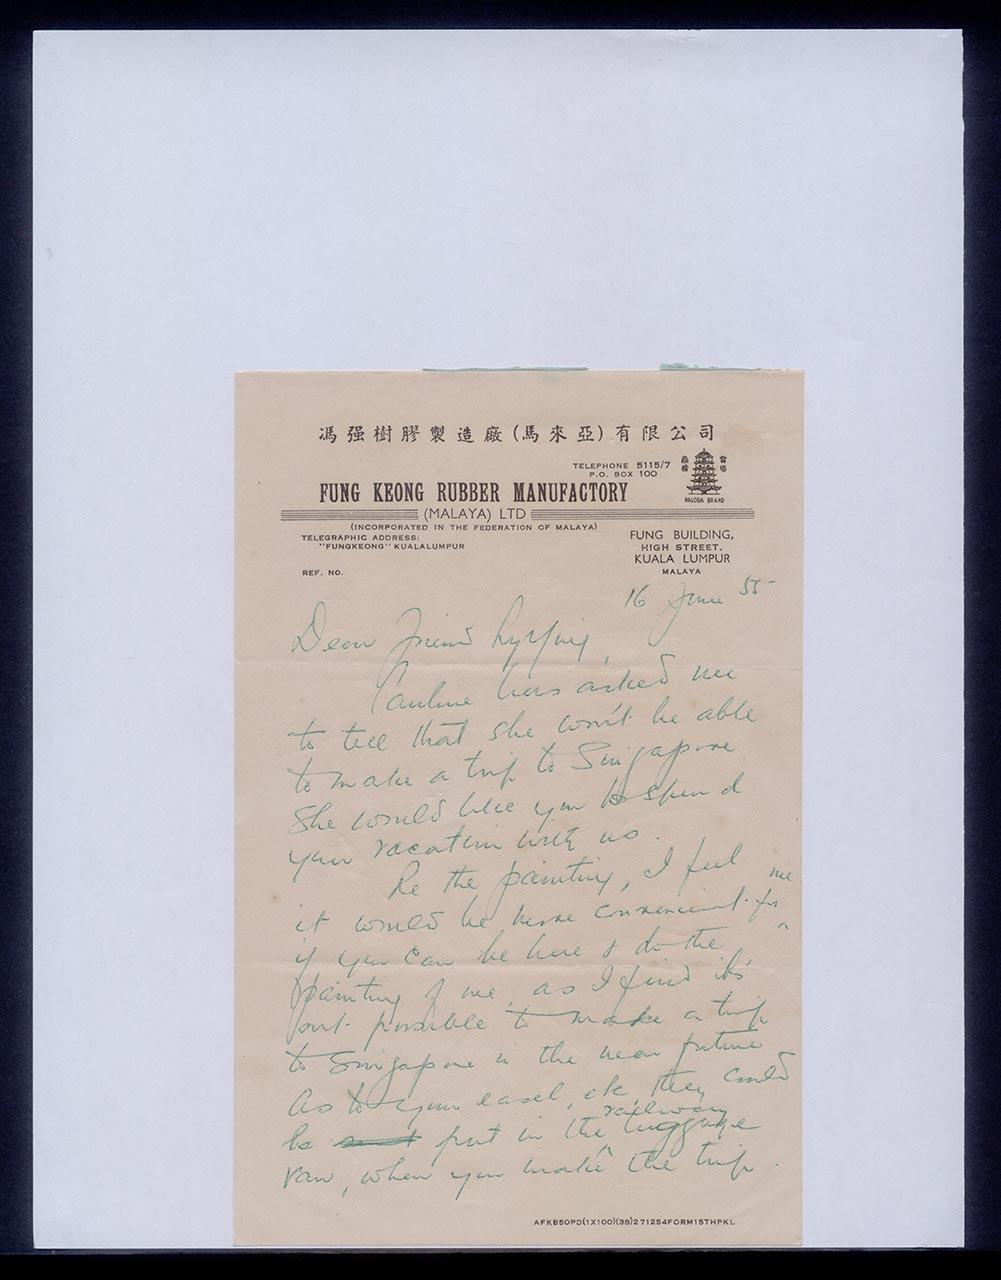 馮强樹膠製造廠(馬來亞)有限公司
TELEPHONE 5115/7
P.O. BOX 100
FUNG KEONG RUBBER MANUFACTORY
(MALAYA) LTD
PAGODA BRAND
(INCORPORATED IN THE FEDERATION OF MALAYA)
TELEGRAPHIC ADDRESS:
"FUNGKEONG" KUALALUMPUR
FUNG BUILDING,
HIGH STREET.
KUALA LUMPUR
MALAYA
REF. NO.
16 June 55
Dear Friend
Pauline has asked me
to tell that she won't be able
to make a trip to Singapore.
She would like you to spend
your vacation with us.
Re the painting, I feel
it would be more convenient for me
if you can be here & do the
painting of me, as I find it's
not possible to make a trip
to Singapore in the near future
As to your easel, etc they could
be put in the railway luggage
van, when you make the trip.
AFKB50PD(1X100)(38)271254FORM15THPKL